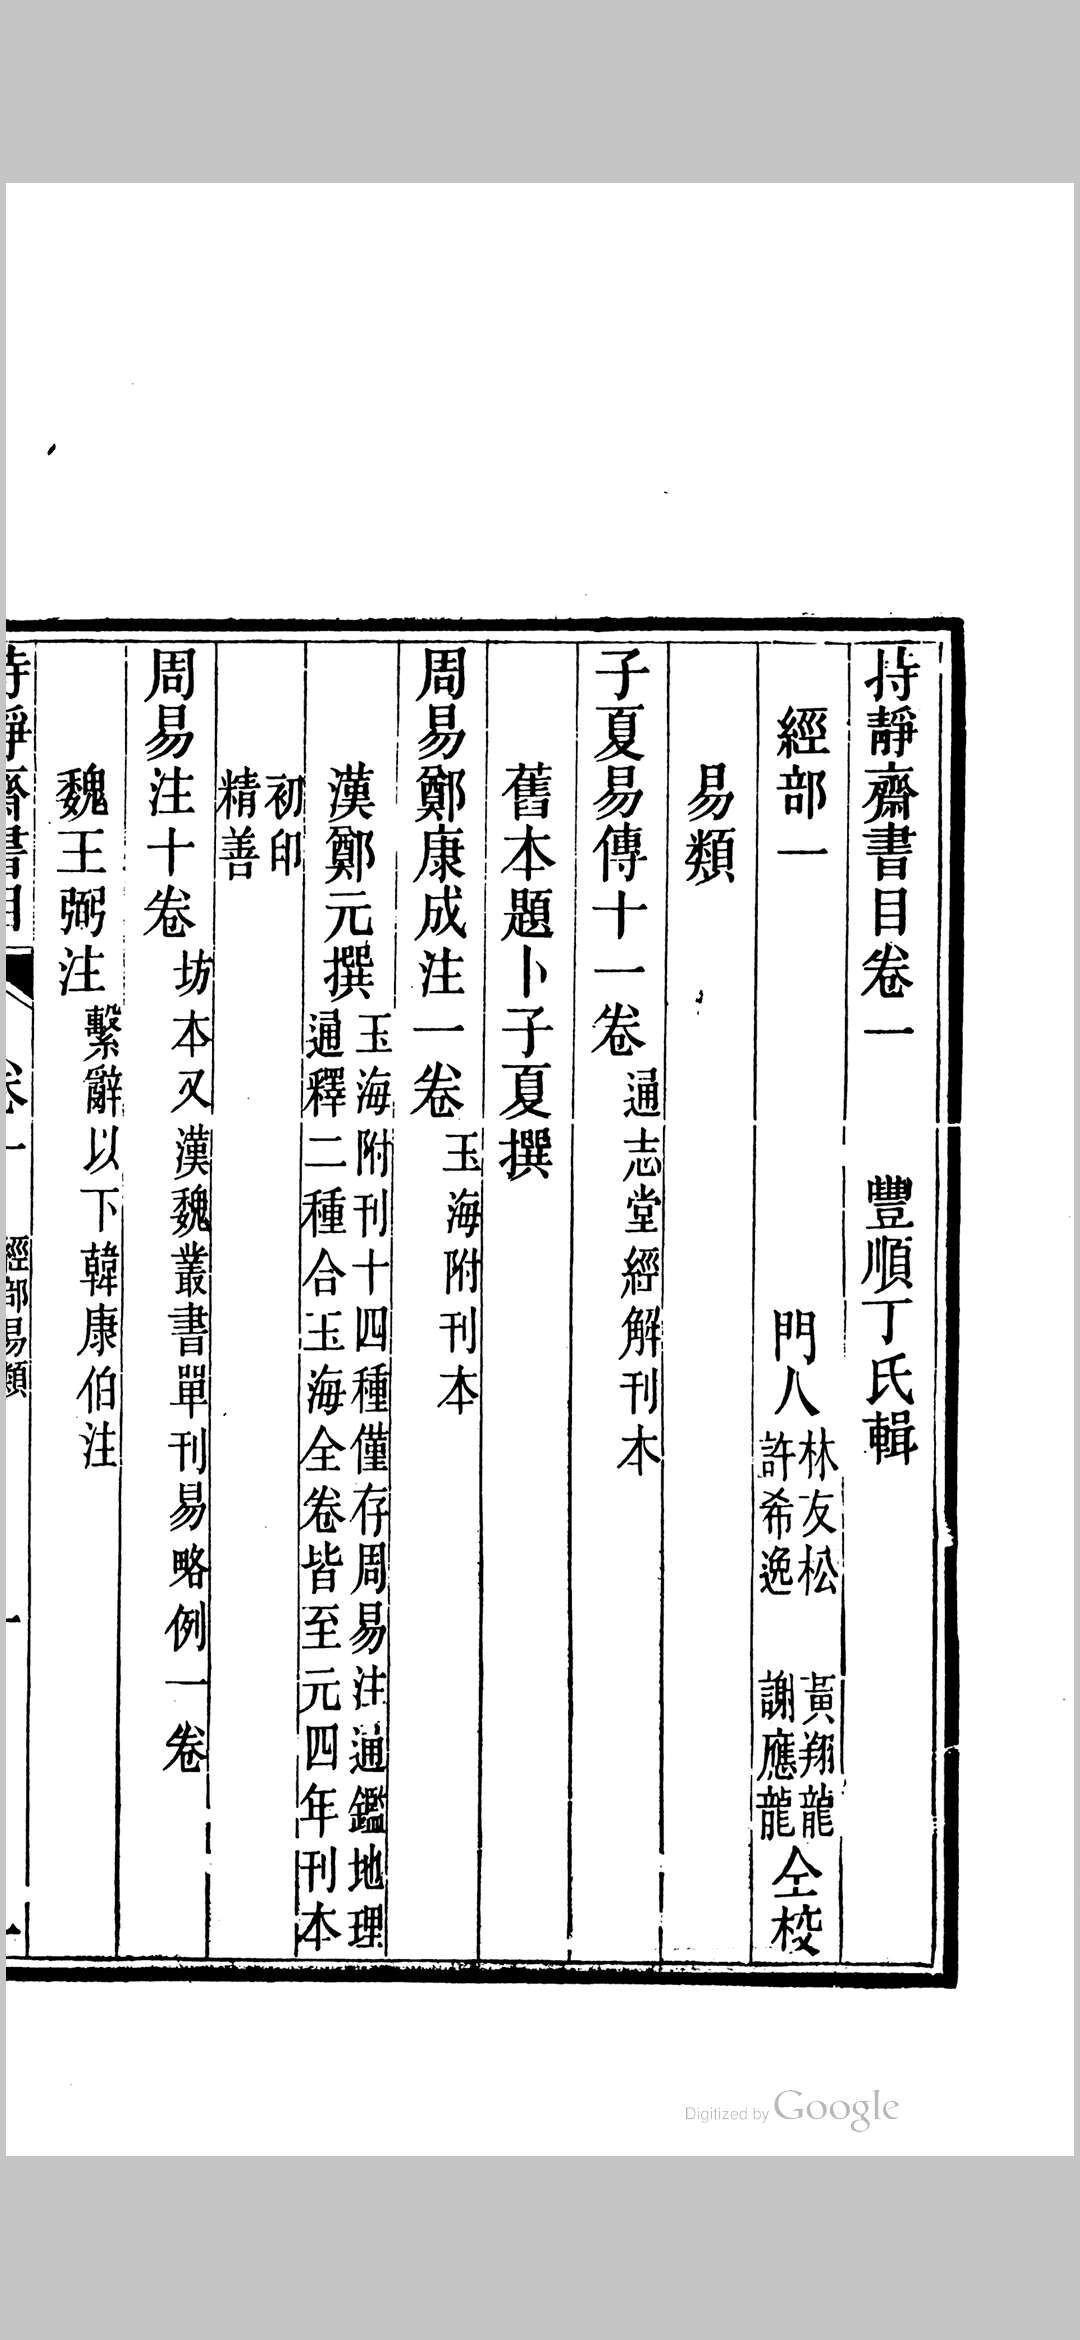 持靜齋書目卷一　豐順丁氏輯
經部一　門人林友松許希逸　黃翔龍謝應龍仝校
易類
子夏易傳十一卷通志堂經解刊本
舊本題卜子夏撰
周易鄭康成注一卷玉海附刊本
漢鄭元撰玉海附刊十四種僅存周易注通鑑地理通釋二種合玉海全卷皆至元四年刊本
初印精善
周易注十卷坊本又漢魏叢書單刊易略例一卷
魏王弼注繫辭以下韓康伯注
持靜齋書目　卷一　經部易類　一
Digitized by Google